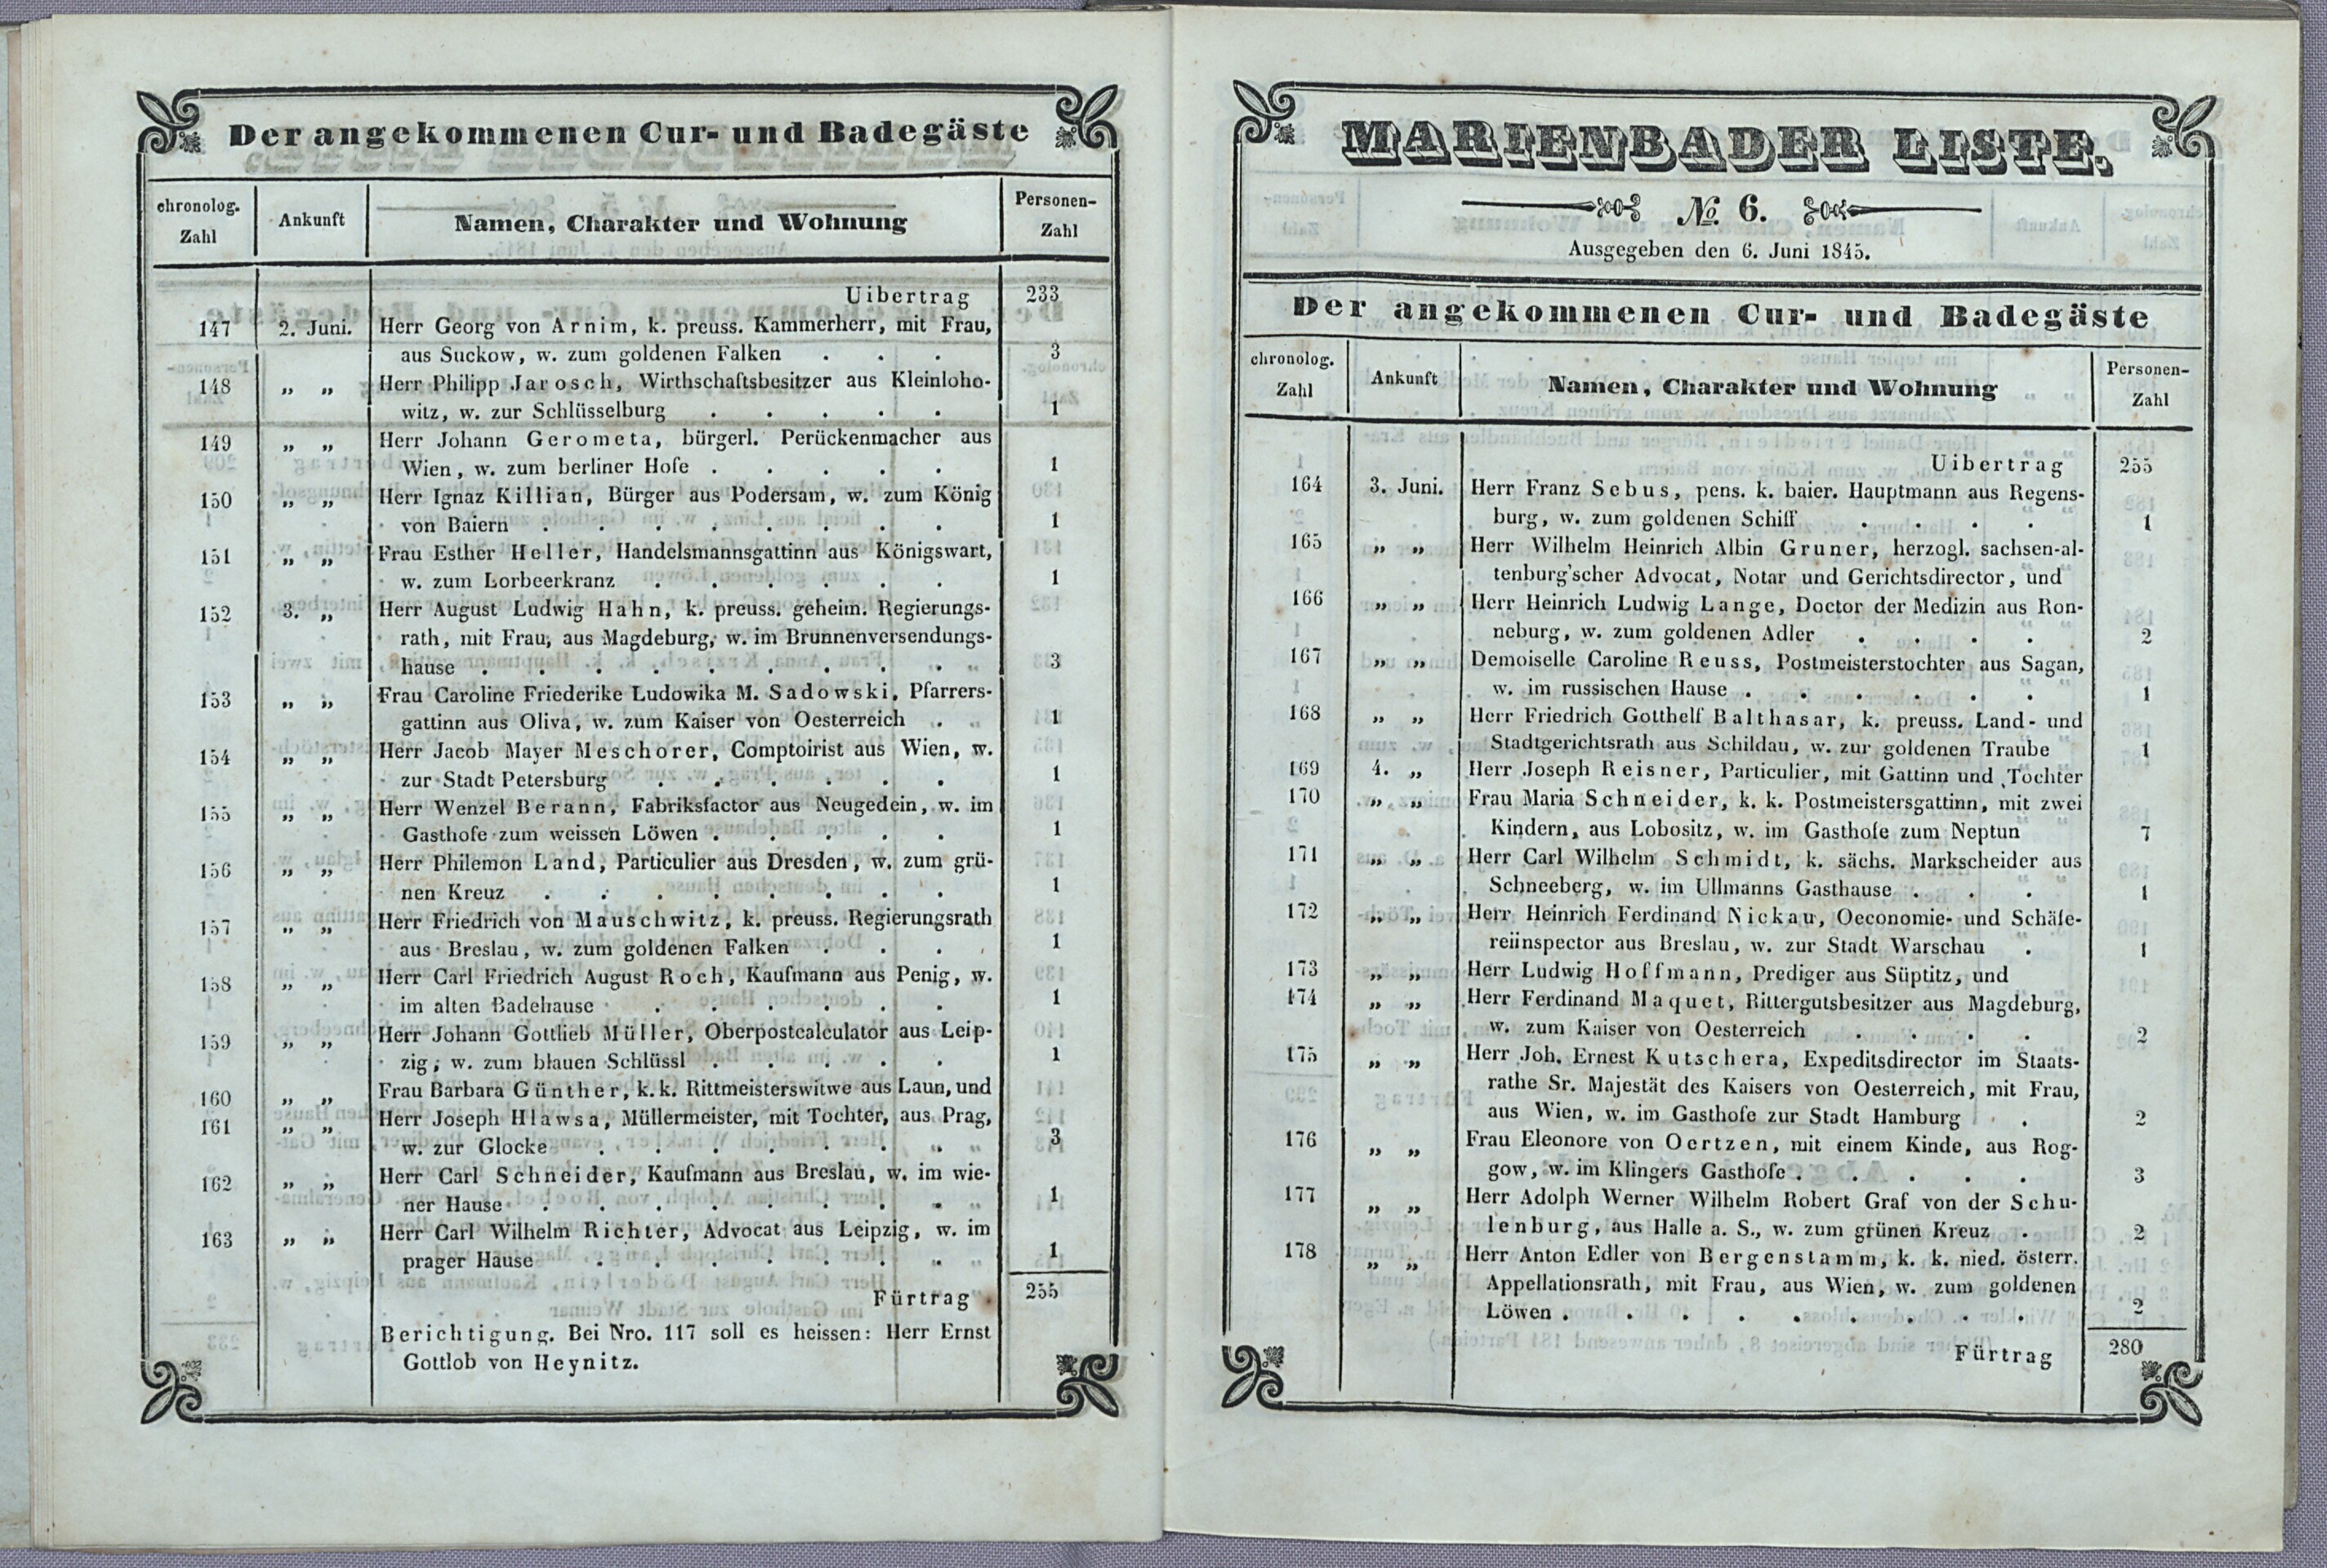 Der angekommenen Cur- und Badegäste
chronolog. Zahl
Ankunft
Namen, Charakter und Wohnung
Personen- Zahl
Uibertrag 233
147 2. Juni. Herr Georg von Arnim, k. preuss. Kammerherr, mit Frau,
aus Suckow, w. zum goldenen Falken . . . 3
148 „ „ Herr Philipp Jarosch, Wirthschaftsbesitzer aus Kleinloho-
witz, w. zur Schlüsselburg . . . . . 1
149 „ „ Herr Johann Gerometa, bürgerl. Perückenmacher aus
Wien, w. zum berliner Hofe . . . . . 1
150 „ „ Herr Ignaz Killian, Bürger aus Podersam, w. zum König
von Baiern . . . . . . . . 1
151 „ „ Frau Esther Heller, Handelsmannsgattinn aus Königswart,
w. zum Lorbeerkranz . . . . . . 1
152 3. „ Herr August Ludwig Hahn, k. preuss. geheim. Regierungs-
rath, mit Frau, aus Magdeburg, w. im Brunnenversendungs-
hause . . . . . . . . . 3
153 „ „ Frau Caroline Friederike Ludowika M. Sadowski, Pfarrers-
gattinn aus Oliva, w. zum Kaiser von Oesterreich . 1
154 „ „ Herr Jacob Mayer Meschorer, Comptoirist aus Wien, w.
zur Stadt Petersburg . . . . . . 1
155 „ „ Herr Wenzel Berann, Fabriksfactor aus Neugedein, w. im
Gasthofe zum weissen Löwen . . . . . 1
156 „ „ Herr Philemon Land, Particulier aus Dresden, w. zum grü-
nen Kreuz . . . . . . . . 1
157 „ „ Herr Friedrich von Mauschwitz, k. preuss. Regierungsrath
aus Breslau, w. zum goldenen Falken . . . 1
158 „ „ Herr Carl Friedrich August Roch, Kaufmann aus Penig, w.
im alten Badehause . . . . . . 1
159 „ „ Herr Johann Gottlieb Müller, Oberpostcalculator aus Leip-
zig, w. zum blauen Schlüssl . . . . . 1
160 „ „ Frau Barbara Günther, k. k. Rittmeisterswitwe aus Laun, und
161 „ „ Herr Joseph Hlawsa, Müllermeister, mit Tochter, aus Prag,
w. zur Glocke . . . . . . . 3
162 „ „ Herr Carl Schneider, Kaufmann aus Breslau, w. im wie-
ner Hause . . . . . . . . 1
163 „ „ Herr Carl Wilhelm Richter, Advocat aus Leipzig, w. im
prager Hause . . . . . . . 1
Fürtrag 255
Berichtigung. Bei Nro. 117 soll es heissen: Herr Ernst
Gottlob von Heynitz.
MARIENBADER LISTE.
No. 6.
Ausgegeben den 6. Juni 1845.
Der angekommenen Cur- und Badegäste
chronolog. Zahl
Ankunft
Namen, Charakter und Wohnung
Personen- Zahl
Uibertrag 255
164 3. Juni. Herr Franz Sebus, pens. k. baier. Hauptmann aus Regens-
burg, w. zum goldenen Schiff . . . . 1
165 „ „ Herr Wilhelm Heinrich Albin Gruner, herzogl. sachsen-al-
tenburg'scher Advocat, Notar und Gerichtsdirector, und
166 „ „ Herr Heinrich Ludwig Lange, Doctor der Medizin aus Ron-
neburg, w. zum goldenen Adler . . . . 2
167 „ „ Demoiselle Caroline Reuss, Postmeisterstochter aus Sagan,
w. im russischen Hause . . . . . . 1
168 „ „ Herr Friedrich Gotthelf Balthasar, k. preuss. Land- und
Stadtgerichtsrath aus Schildau, w. zur goldenen Traube 1
169 4. „ Herr Joseph Reisner, Particulier, mit Gattinn und Tochter
170 „ „ Frau Maria Schneider, k. k. Postmeistersgattinn, mit zwei
Kindern, aus Lobositz, w. im Gasthofe zum Neptun 7
171 „ „ Herr Carl Wilhelm Schmidt, k. sächs. Markscheider aus
Schneeberg, w. im Ullmanns Gasthause . . . 1
172 „ „ Herr Heinrich Ferdinand Nickau, Oeconomie- und Schäfe-
reiinspector aus Breslau, w. zur Stadt Warschau . 1
173 „ „ Herr Ludwig Hoffmann, Prediger aus Süptitz, und
174 „ „ Herr Ferdinand Maquet, Rittergutsbesitzer aus Magdeburg,
w. zum Kaiser von Oesterreich . . . . 2
175 „ „ Herr Joh. Ernest Kutschera, Expeditsdirector im Staats-
rathe Sr. Majestät des Kaisers von Oesterreich, mit Frau,
aus Wien, w. im Gasthofe zur Stadt Hamburg . 2
176 „ „ Frau Eleonore von Oertzen, mit einem Kinde, aus Rog-
gow, w. im Klingers Gasthofe . . . . . 3
177 „ „ Herr Adolph Werner Wilhelm Robert Graf von der Schu-
lenburg, aus Halle a. S., w. zum grünen Kreuz . 2
178 „ „ Herr Anton Edler von Bergenstamm, k. k. nied. österr.
Appellationsrath, mit Frau, aus Wien, w. zum goldenen
Löwen . . . . . . . . . 2
Fürtrag 280